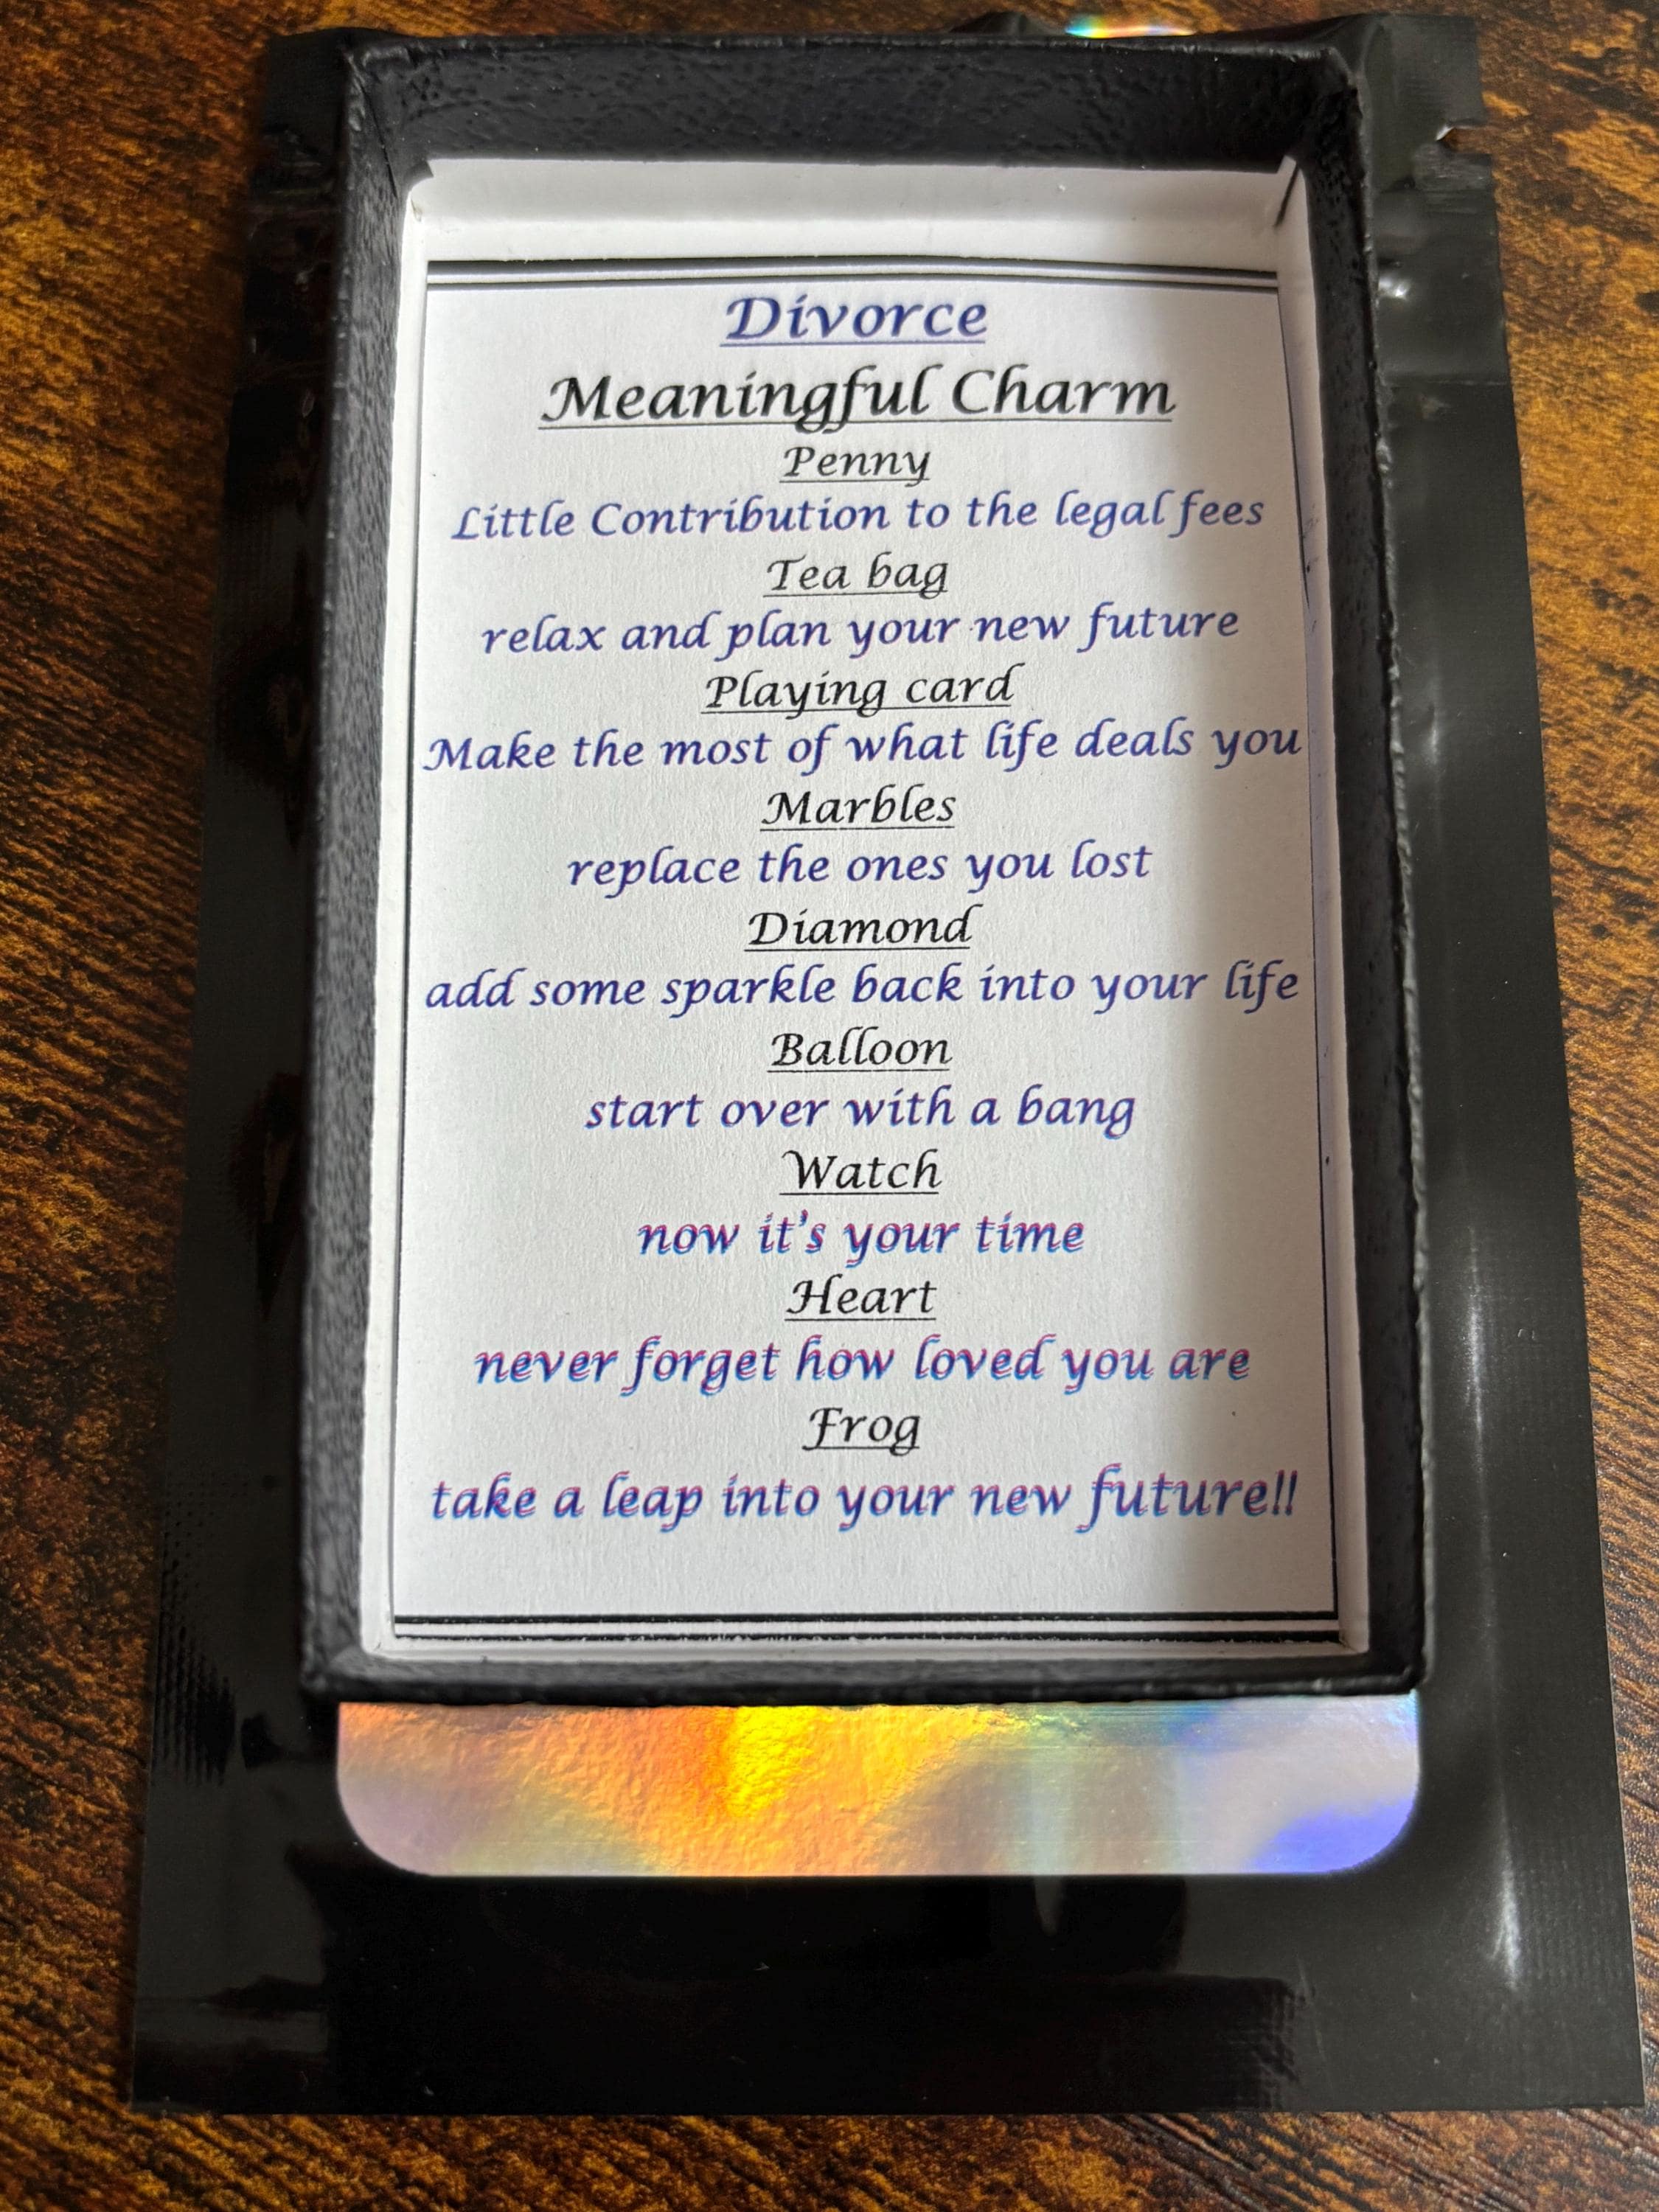 Divorce
Meaningful Charm
Penny
Little Contribution to the legal fees
Tea bag
relax and plan your new future
Playing card
Make the most of what life deals you
Marbles
replace the ones you lost
Diamond
add some sparkle back into your life
Balloon
start over with a bang
Watch
now it's your time
Heart
never forget how loved you are
Frog
take a leap into your new future!!